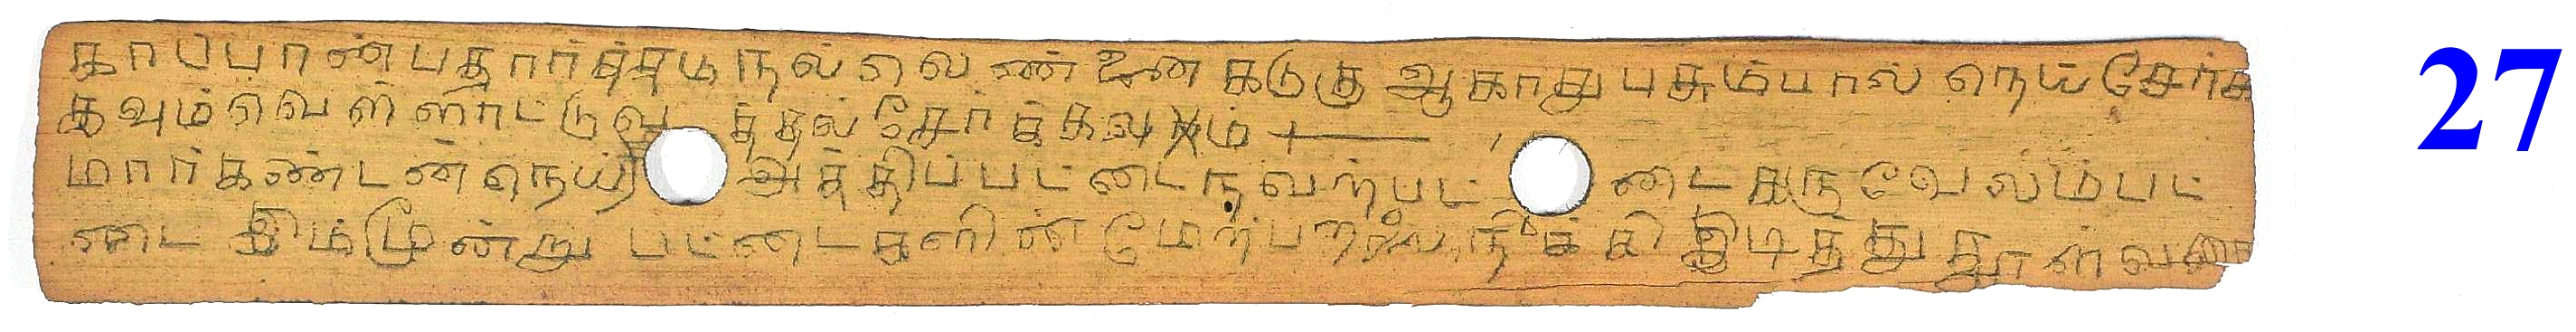 காப்பான் பதார்த்தமூ நல்லெண்ணை கடுகு ஆகாது பசும்பால் நெய் சேர்க்
கவும் வெள்ளாட்டுவ த்தல் சேர்க்கவும்
மார்கண்டன் நெய் அத்திப் பட்டை நவற்பட்டை கருவேலம்பட்
டை இம்மூன்று பட்டைகளின் மேற்ப நிக்கி இடித்து தூள்
27